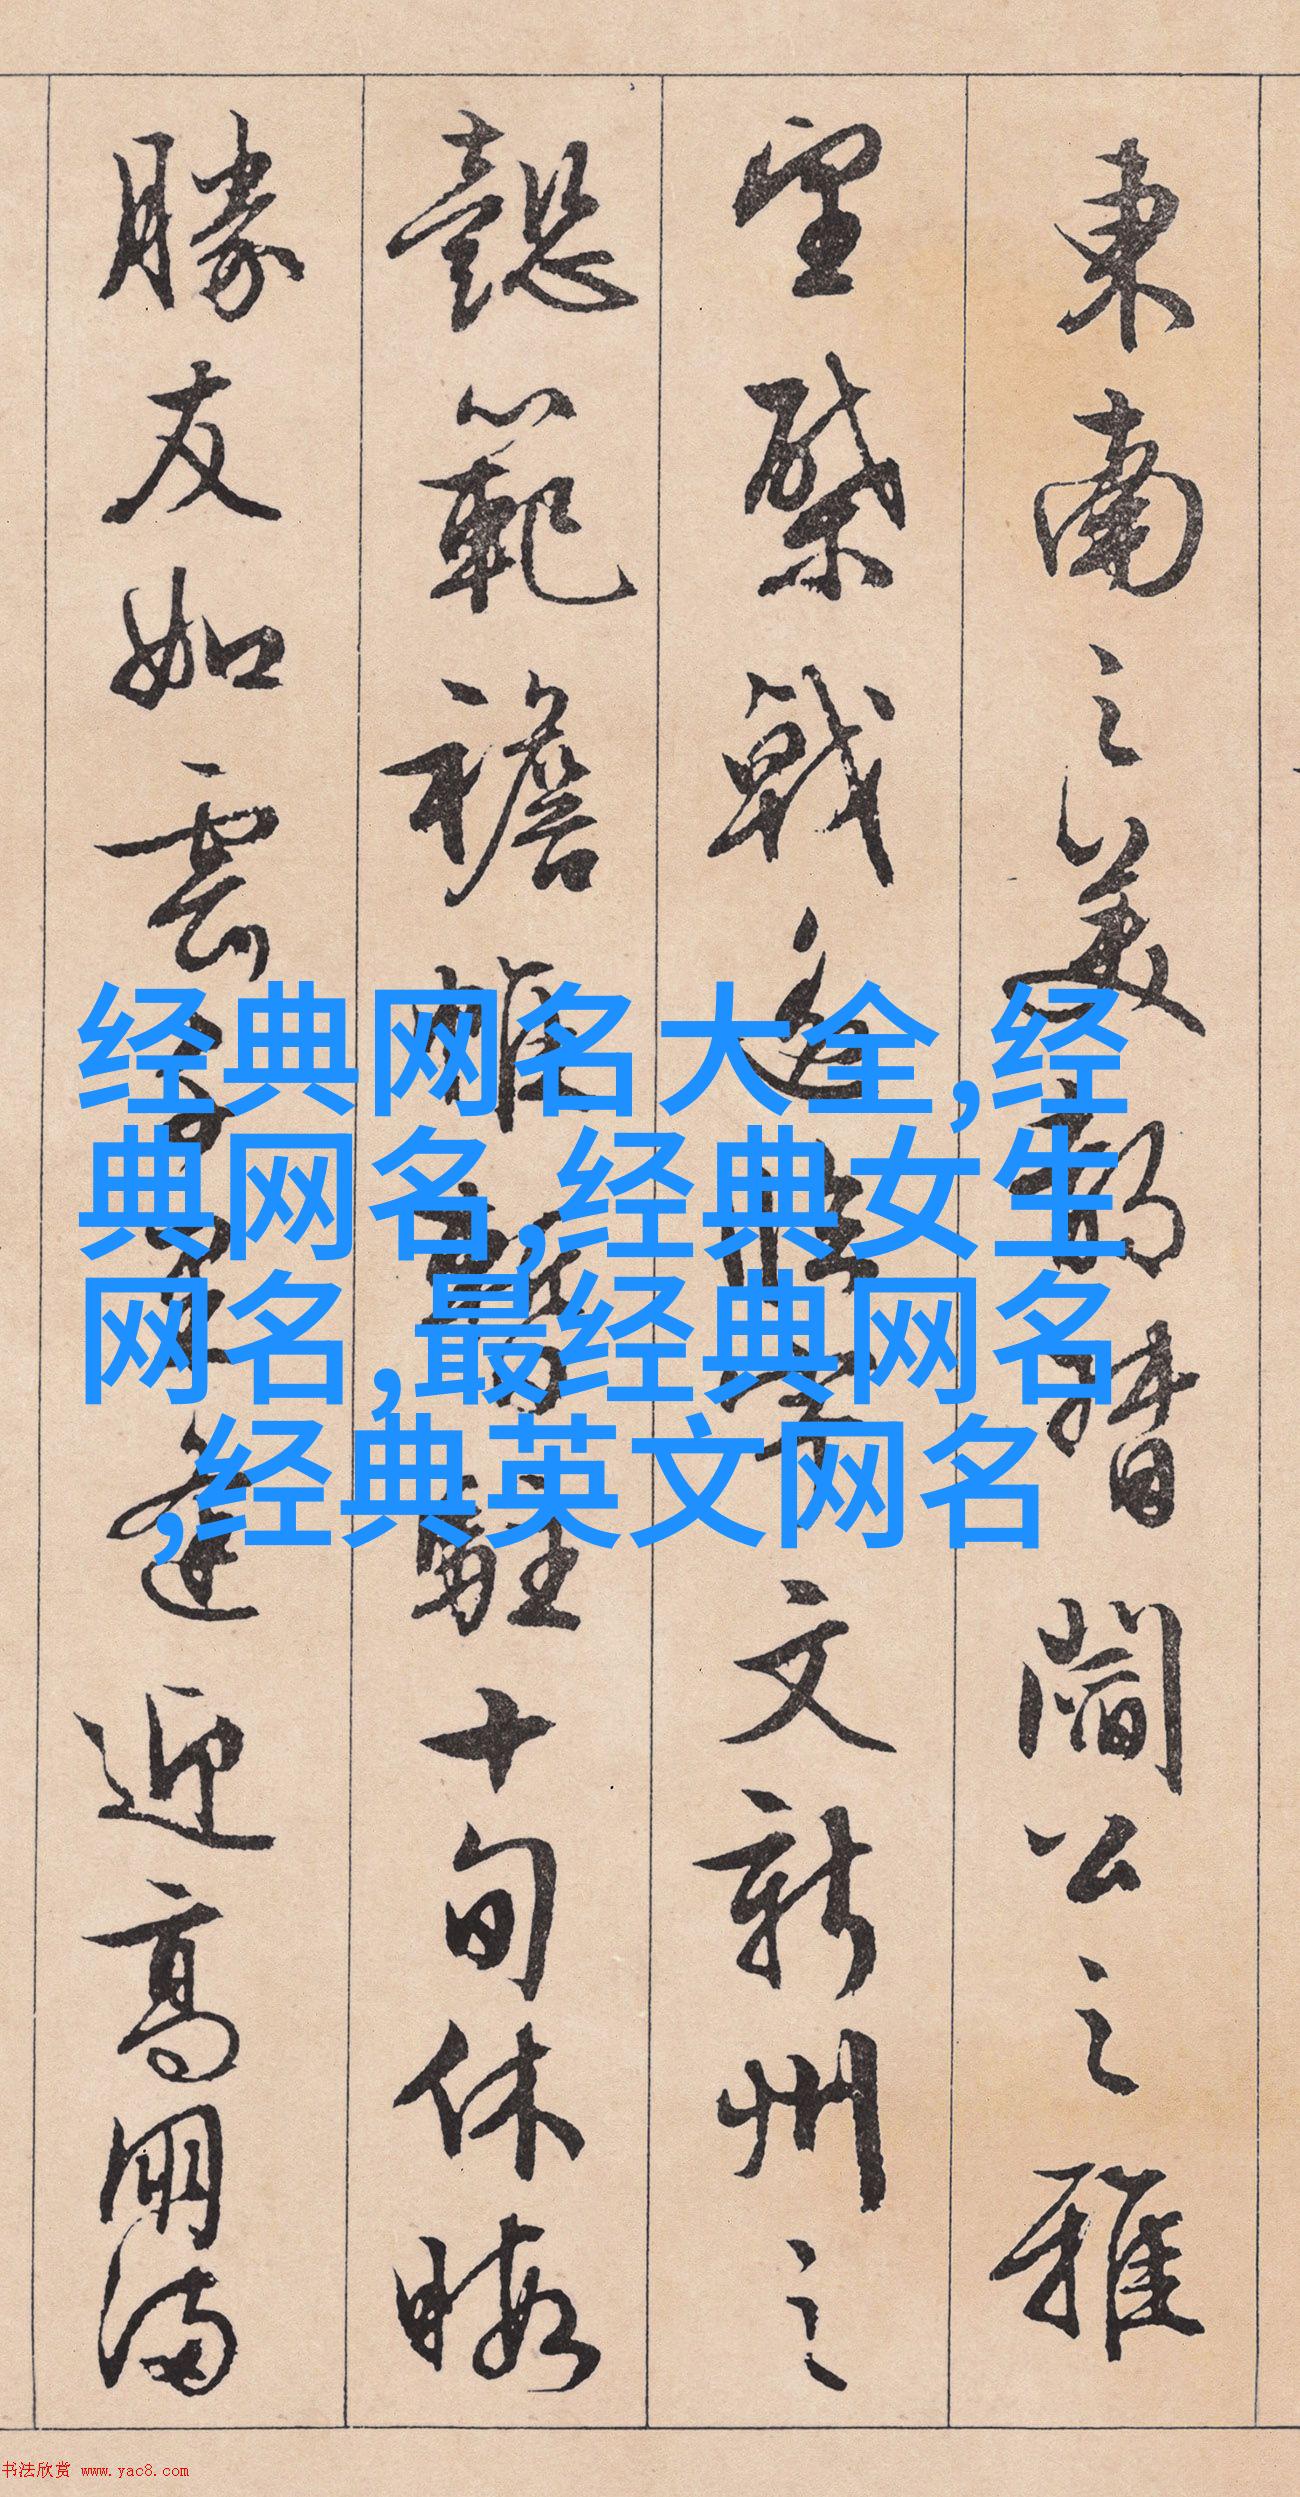 東南之美都督閻公之雅
望棨戟遙臨宇文新州之
懿範襜帷暫駐十旬休暇
勝友如雲千里逢迎高朋滿
经典网名大全,经
典网名,经典女生
网名,最经典网名
,经典英文网名
书法欣赏 www.yac8.com